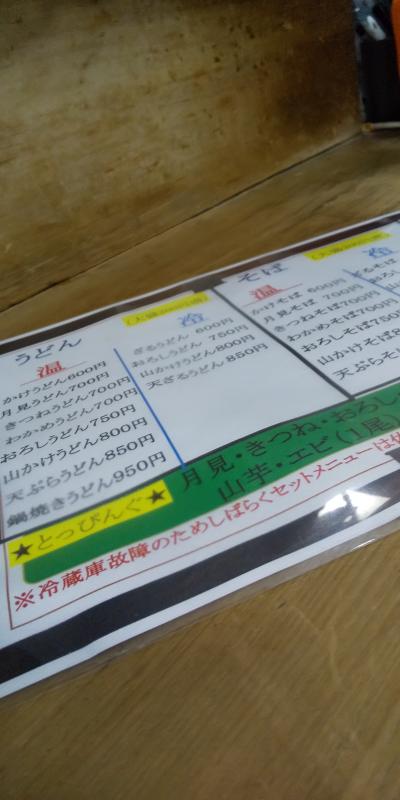 うどん
温
かけうどん600円
月見うどん700円
きつねうどん700円
わかめうどん700円
おろしうどん750円
山かけうどん800円
天ぷらうどん850円
鍋焼きうどん950円
冷
ざるうどん 600円
おろしうどん 750円
山かけうどん800円
天ざるうどん 850円
そば
温
かけそば 600円
月見そば 700円
きつねそば700円
わかめそば 700円
おろしそば750
山かけそば
天ぷらそ
冷
★とっぴんぐ★
月見・きつね・おろし
山芋・エビ(1尾)
※冷蔵庫故障のためしばらくセットメニューは